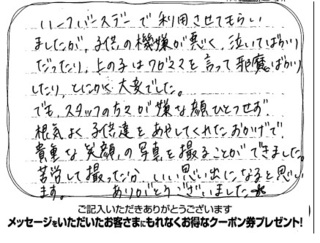 ハーフバースデーで利用させてもらい
ましたが、子供の機嫌が悪く、泣いてばかり
だったり、上の子はワガママを言って邪魔ばかり
したり、とにかく大変でした。
でも、スタッフの方々が嫌な顔ひとつせず
根気よく子供達をあやしてくれたおかげで
貴重な笑顔の写真を撮ることができました。
苦労して撮った分、いい思い出になると思い
ます。 ありがとうございました
ご記入いただきありがとうございます
メッセージをいただいたお客さまにもれなくお得なクーポン券プレゼント!